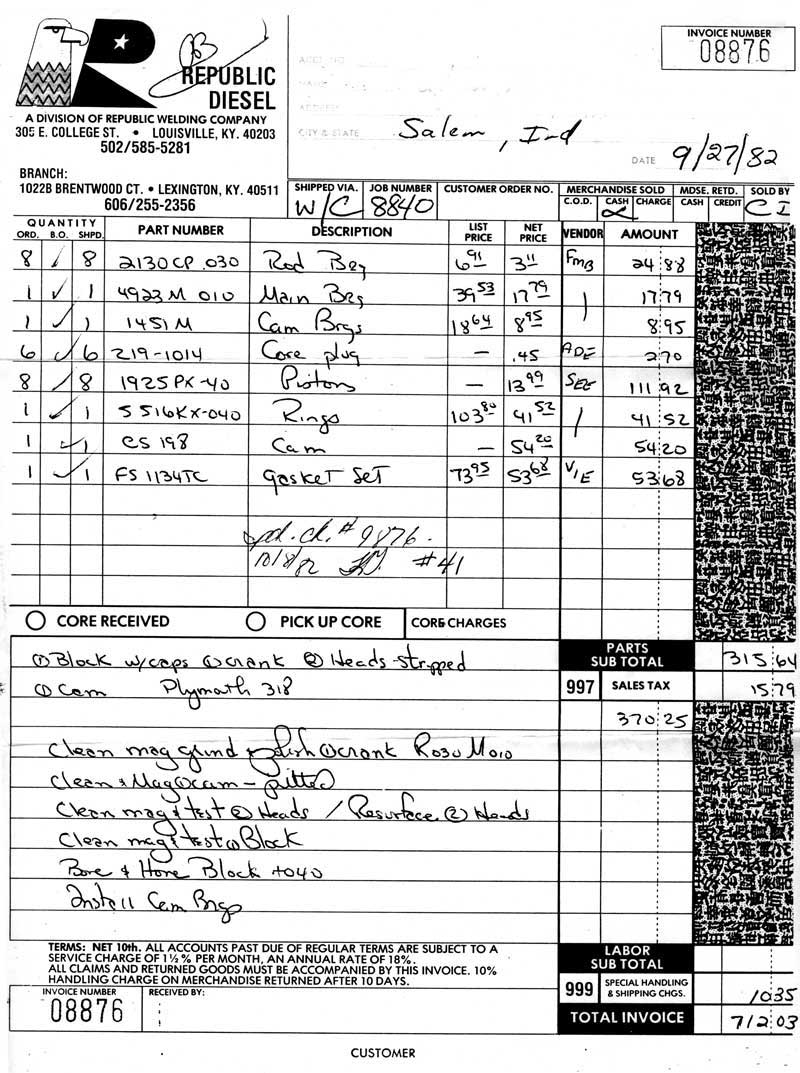 REPUBLIC
DIESEL
A DIVISION OF REPUBLIC WELDING COMPANY
305 E. COLLEGE ST. • LOUISVILLE, KY. 40203
502/585-5281
BRANCH:
1022B BRENTWOOD CT. • LEXINGTON, KY. 40511
606/255-2356
INVOICE NUMBER
08876
ADDRESS
CITY & STATE Salem, Ind
DATE 9/27/82
SHIPPED VIA. JOB NUMBER CUSTOMER ORDER NO. MERCHANDISE SOLD MDSE. RETD. SOLD BY
C.O.D. CASH CHARGE CASH CREDIT
W/C 8840 CI
QUANTITY
ORD. B.O. SHPD. PART NUMBER DESCRIPTION LIST PRICE NET PRICE VENDOR AMOUNT
8 ✓ 8 2130CP .030 Rod Brg 6 91 3 11 FMB 24 88
1 ✓ 1 4923M 010 Main Brg 39 53 17 79 17 79
1 ✓ 1 1451M Cam Brgs 18 64 8 95 8 95
6 ✓ 6 219-1014 Core plug — .45 ADE 2 70
8 ✓ 8 1925PX-40 Pistons — 13 99 SEE 111 92
1 ✓ 1 S516KX-040 Rings 103 80 41 52 41 52
1 ✓ 1 CS 198 Cam — 54 20 54 20
1 ✓ 1 FS 1134TC Gasket Set 73 95 53 68 V/E 53 68
pd. ck. # 9876.
10/8/82 #41
CORE RECEIVED PICK UP CORE CORE CHARGES
① Block w/caps ① crank ② Heads-stripped
① Cam Plymouth 318
PARTS
SUB TOTAL 315 64
997 SALES TAX 15 79
370 25
Clean mag grind polish ① crank R030 M010
Clean & Mag ① cam - pitted
Clean mag & test ② Heads / Resurface ② Heads
Clean mag & test ① Block
Bore & Hone Block +040
Install Cam Brgs
TERMS: NET 10th. ALL ACCOUNTS PAST DUE OF REGULAR TERMS ARE SUBJECT TO A
SERVICE CHARGE OF 1½% PER MONTH, AN ANNUAL RATE OF 18%.
ALL CLAIMS AND RETURNED GOODS MUST BE ACCOMPANIED BY THIS INVOICE. 10%
HANDLING CHARGE ON MERCHANDISE RETURNED AFTER 10 DAYS.
LABOR
SUB TOTAL
999 SPECIAL HANDLING & SHIPPING CHGS. 10 35
TOTAL INVOICE 712 03
INVOICE NUMBER
08876
RECEIVED BY:
CUSTOMER